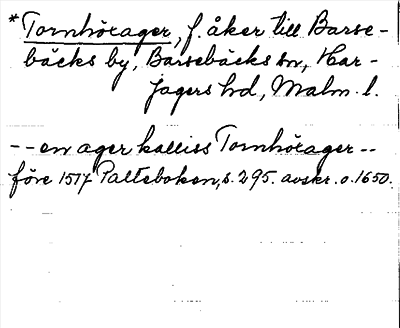 *Tornhörager, f. åker till Barse-
bäcks by, Barsebäcks sn, Har-
jagers hd, Malm. l.
-- en ager kalliss Tornhörager --
före 1517 Palteboken, s. 295. avskr. o. 1650.